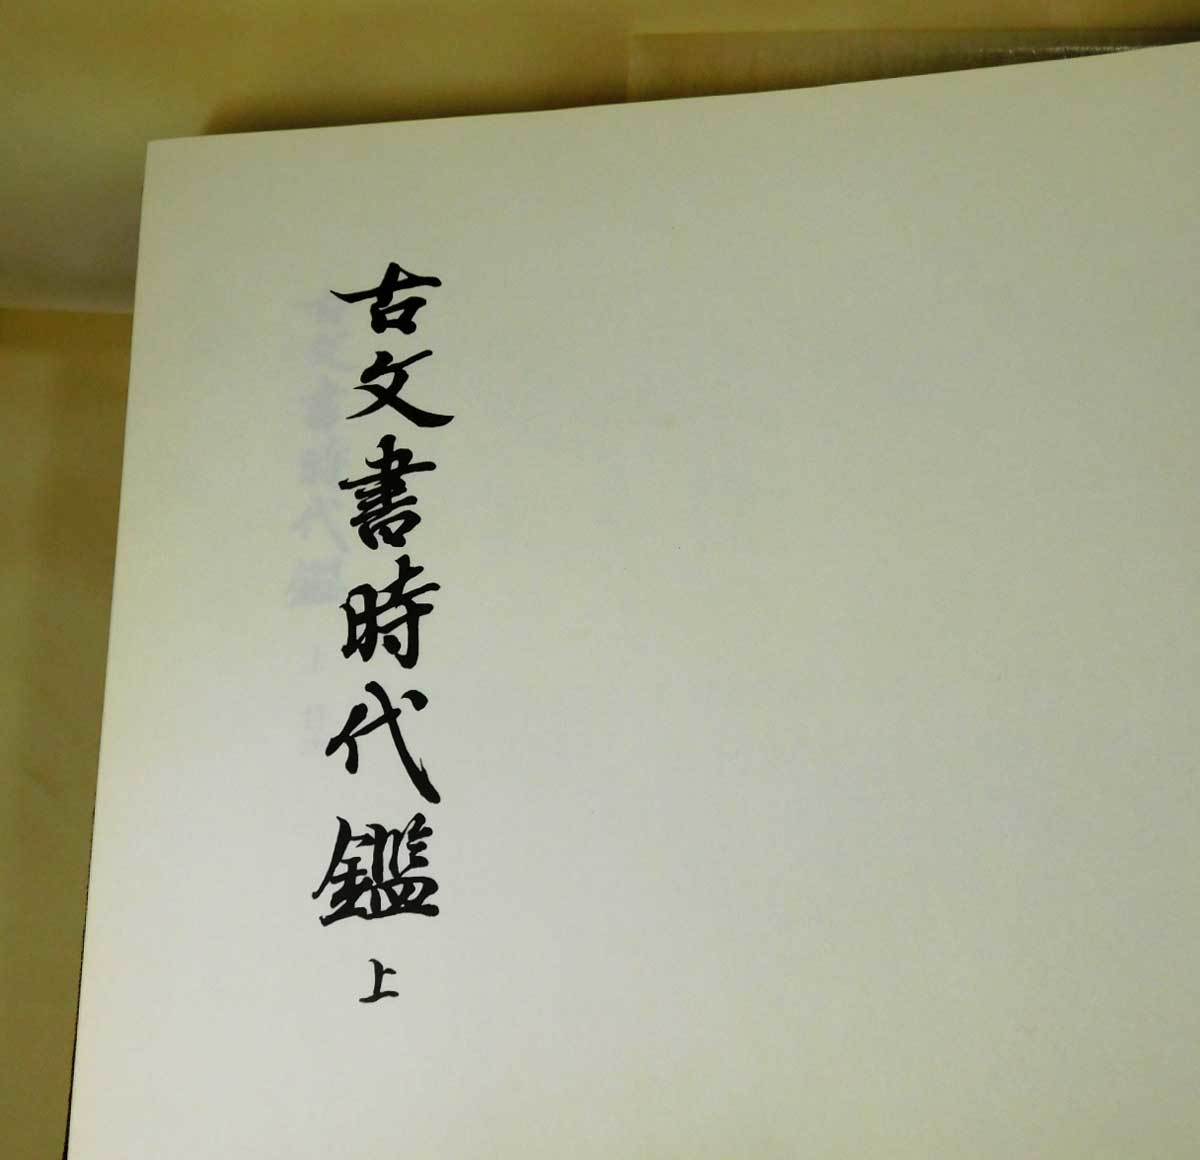 古文書時代鑑 上